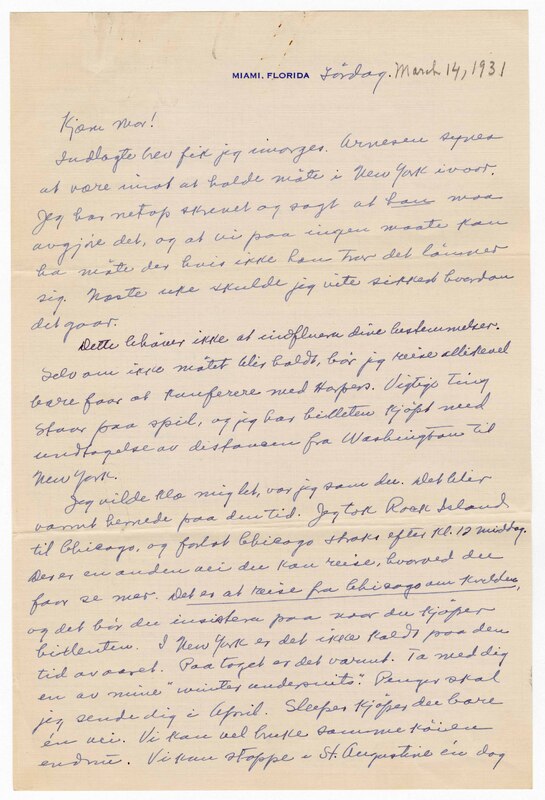 MIAMI, FLORIDA Lördag. March 14, 1931
Kjære Mor!
Indlagte brev fik jeg imorges. Arnesen synes
at være imot at holde möte i New York ivaar.
Jeg har netop skrevet og sagt at han maa
avgjöre det, og at vi paa ingen maate kan
ha möte der hvis ikke han tror det lönner
sig. Næste uke skulde jeg vite sikkert hvordan
det gaar.
Dette behöver ikke at influere dine bestemmelser.
Selv om ikke mötet blir holdt, bör jeg reise allikevel
bare for at konferere med Harpers. Vigtige ting
staar paa spil, og jeg har billeten kjöpt med
undtagelse av distansen fra Washington til
New York.
Jeg vilde klæ mig let, var jeg som du. Det blir
varmt hernede paa den tid. Jeg tok Rock Island
til Chicago, og forlot Chicago straks efter kl. 12 middag.
Der er en anden vei du kan reise, hvorved du
faar se mer. Det er at reise fra Chicago om kvelden,
og det bör du insistere paa naar du kjöper
billetten. I New York er det ikke kaldt paa den
tid av aaret. Paa toget er det varmt. Ta med dig
en av mine "winter undersuits". Penger skal
jeg sende dig i April. Sleeper kjöper du bare
én vei. Vi kan vel bruke samme köien
endnu. Vi kan stoppe i St. Augustine én dag